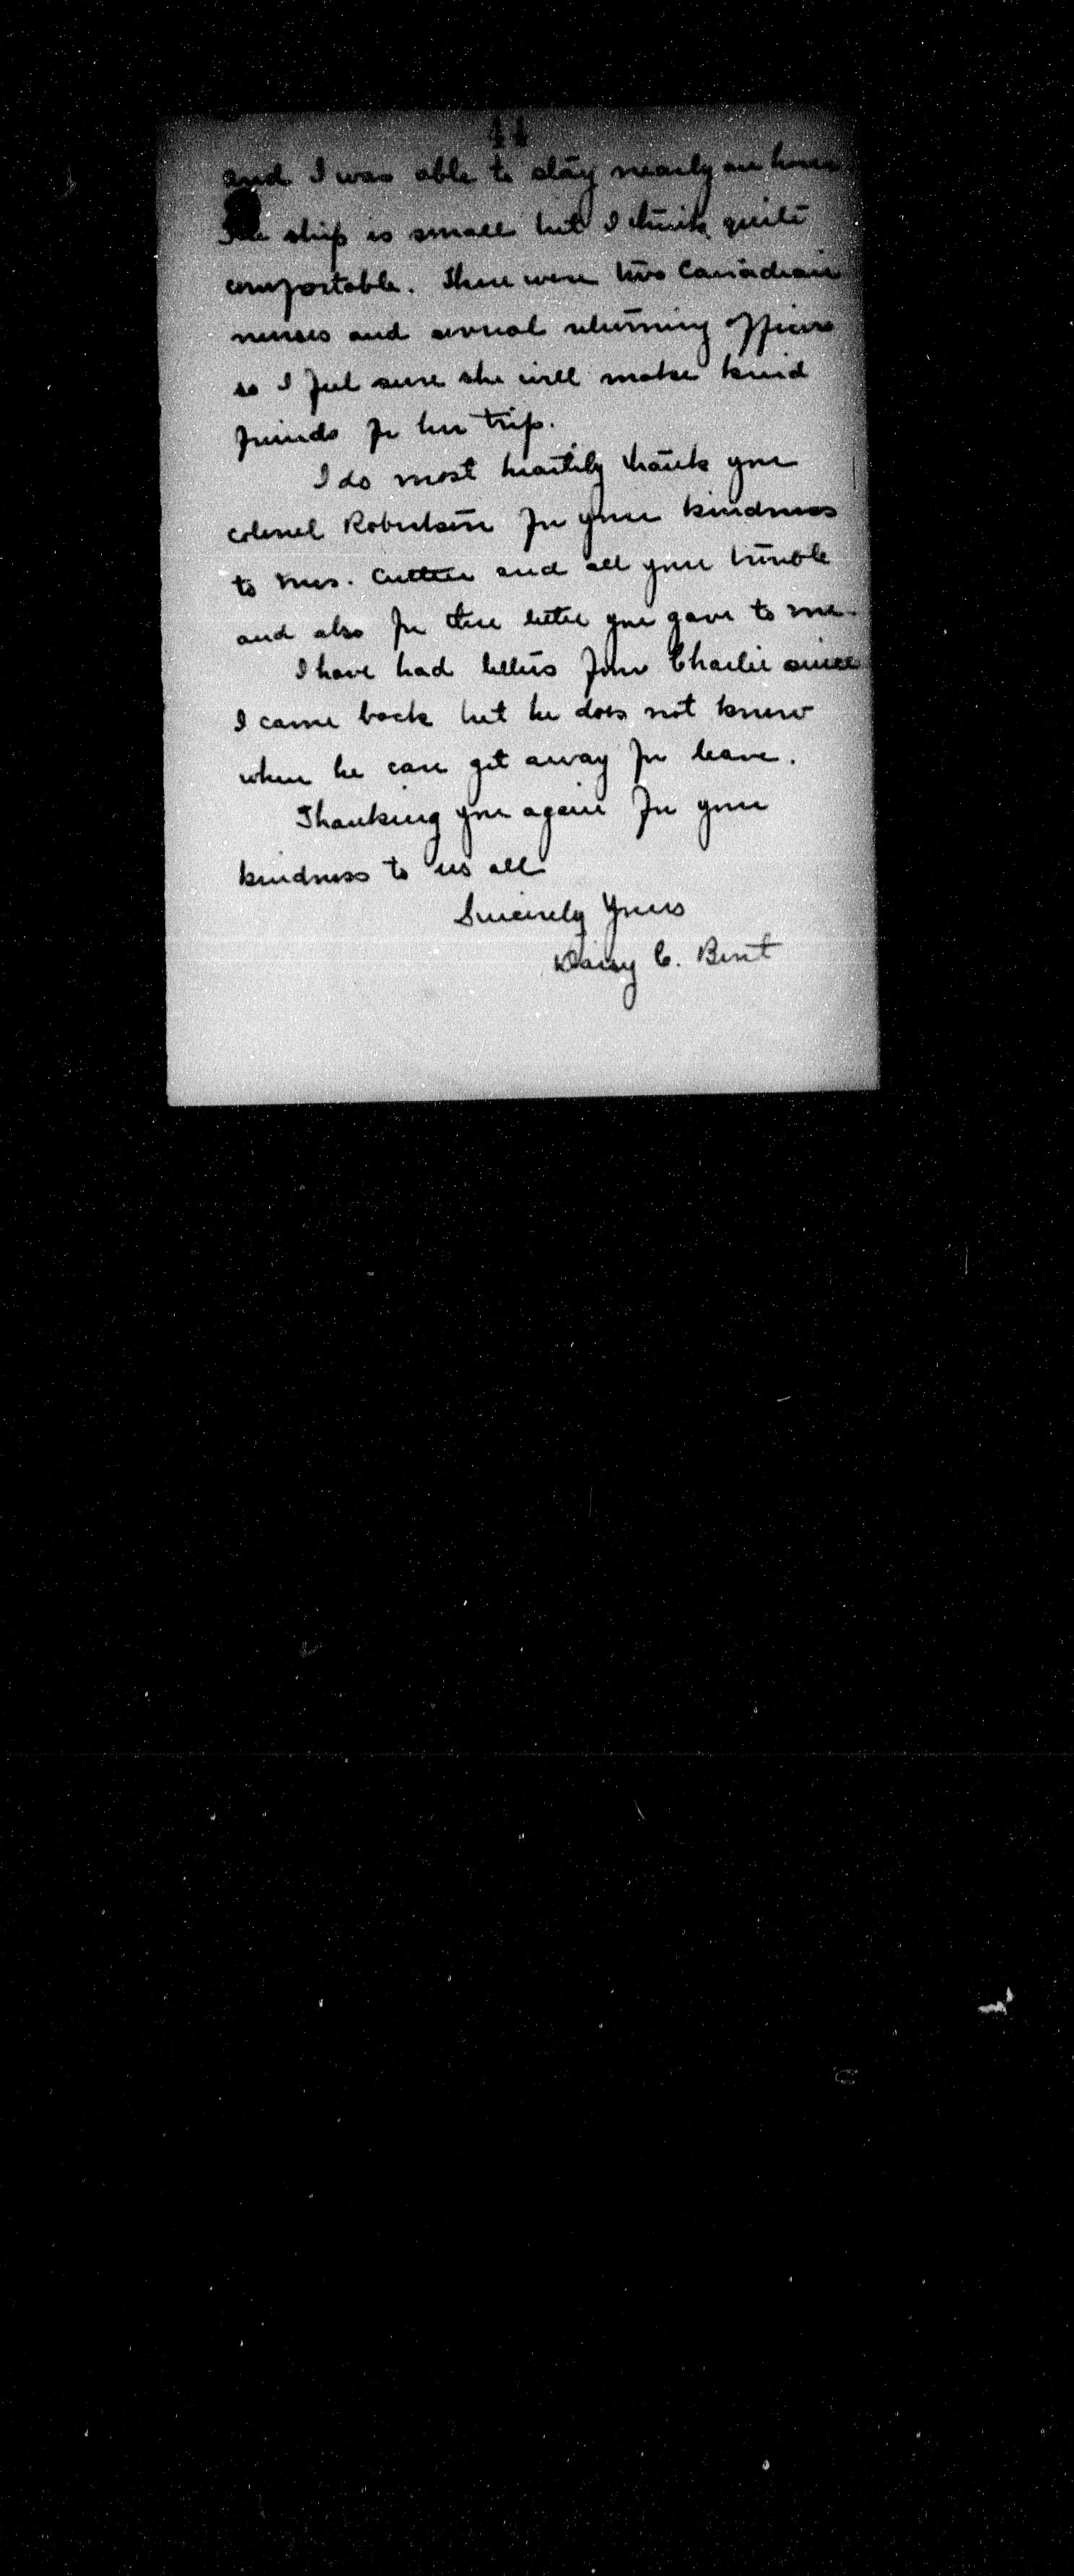 and I was able to stay nearly an hour.
The ship is small but I think quite
comfortable. There were two Canadian
nurses and several returning officers
so I feel sure she will make kind
friends for her trip.
I do most heartily thank you
Colonel Robertson for your kindness
to Mrs. Cutten and all your trouble
and also for the letter you gave to me.
I have had letters from Charlie since
I came back but he does not know
when he can get away for leave.
Thanking you again for your
kindness to us all
Sincerely Yours
Daisy C. Bent